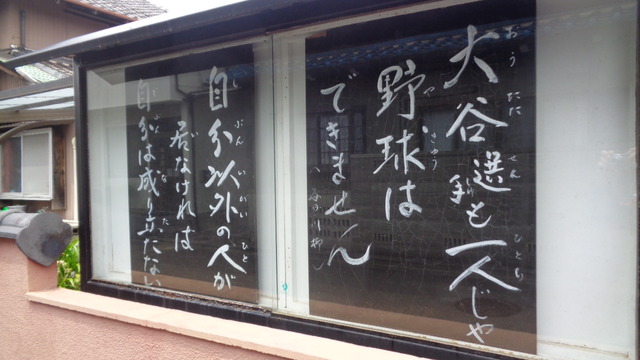 大谷選手も一人じゃ
野球は
できません
自分以外の人が
居なければ
自分は成り立たない